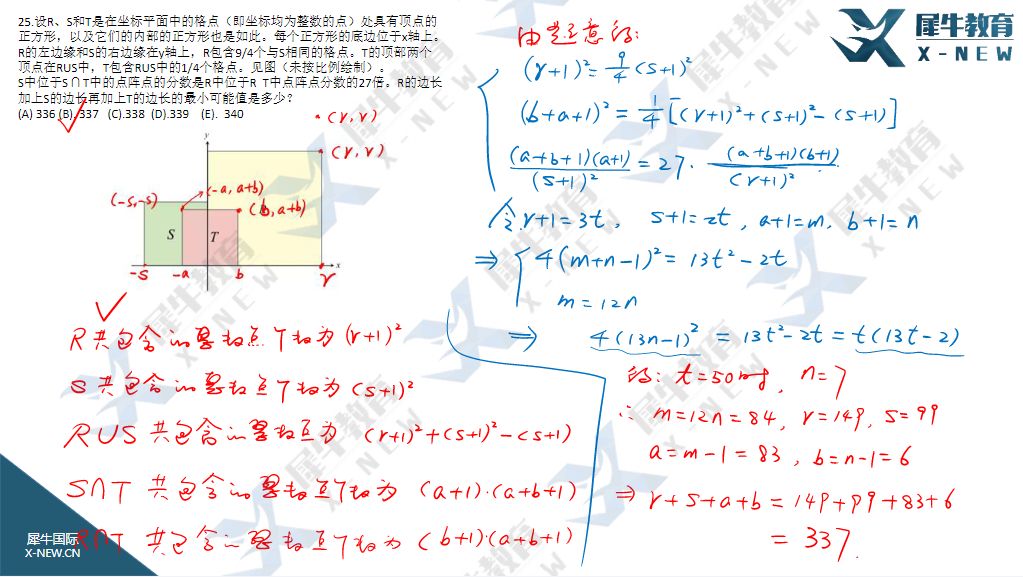 25.设R、S和T是在坐标平面中的格点（即坐标均为整数的点）处具有顶点的
正方形，以及它们的内部的正方形也是如此。每个正方形的底边位于x轴上。
R的左边缘和S的右边缘在y轴上，R包含9/4个与S相同的格点。T的顶部两个
顶点在RUS中，T包含RUS中的1/4个格点。见图（未按比例绘制）。
S中位于S∩T中的点阵点的分数是R中位于R T中点阵点分数的27倍。R的边长
加上S的边长再加上T的边长的最小可能值是多少？
(A) 336 (B). 337 (C).338 (D).339 (E). 340
犀牛教育
X-NEW
y
(r, r)
(r, r)
(-s, s)
(-a, a+b)
(b, a+b)
S
T
x
-s
-a
b
r
R共包含的整数点个数为 (r+1)²
S共包含的整数点个数为 (s+1)²
RUS 共包含的整数点为 (r+1)²+(s+1)²-(s+1)
S∩T 共包含的整数点个数为 (a+1)·(a+b+1)
R∩T 共包含的整数点个数为 (b+1)·(a+b+1)
由题意得:
(r+1)²=9/4(s+1)²
(b+a+1)²=1/4[(r+1)²+(s+1)²-(s+1)]
(a+b+1)(a+1)/(s+1)²=27·(a+b+1)(b+1)/(r+1)²
令r+1=3t, s+1=2t, a+1=m, b+1=n
⇒ 4(m+n-1)²=13t²-2t
m=12n
⇒ 4(13n-1)²=13t²-2t=t(13t-2)
得: t=50时, n=7
∴ m=12n=84, r=149, s=99
a=m-1=83, b=n-1=6
⇒ r+s+a+b=149+99+83+6
=337.
犀牛国际
X-NEW.CN